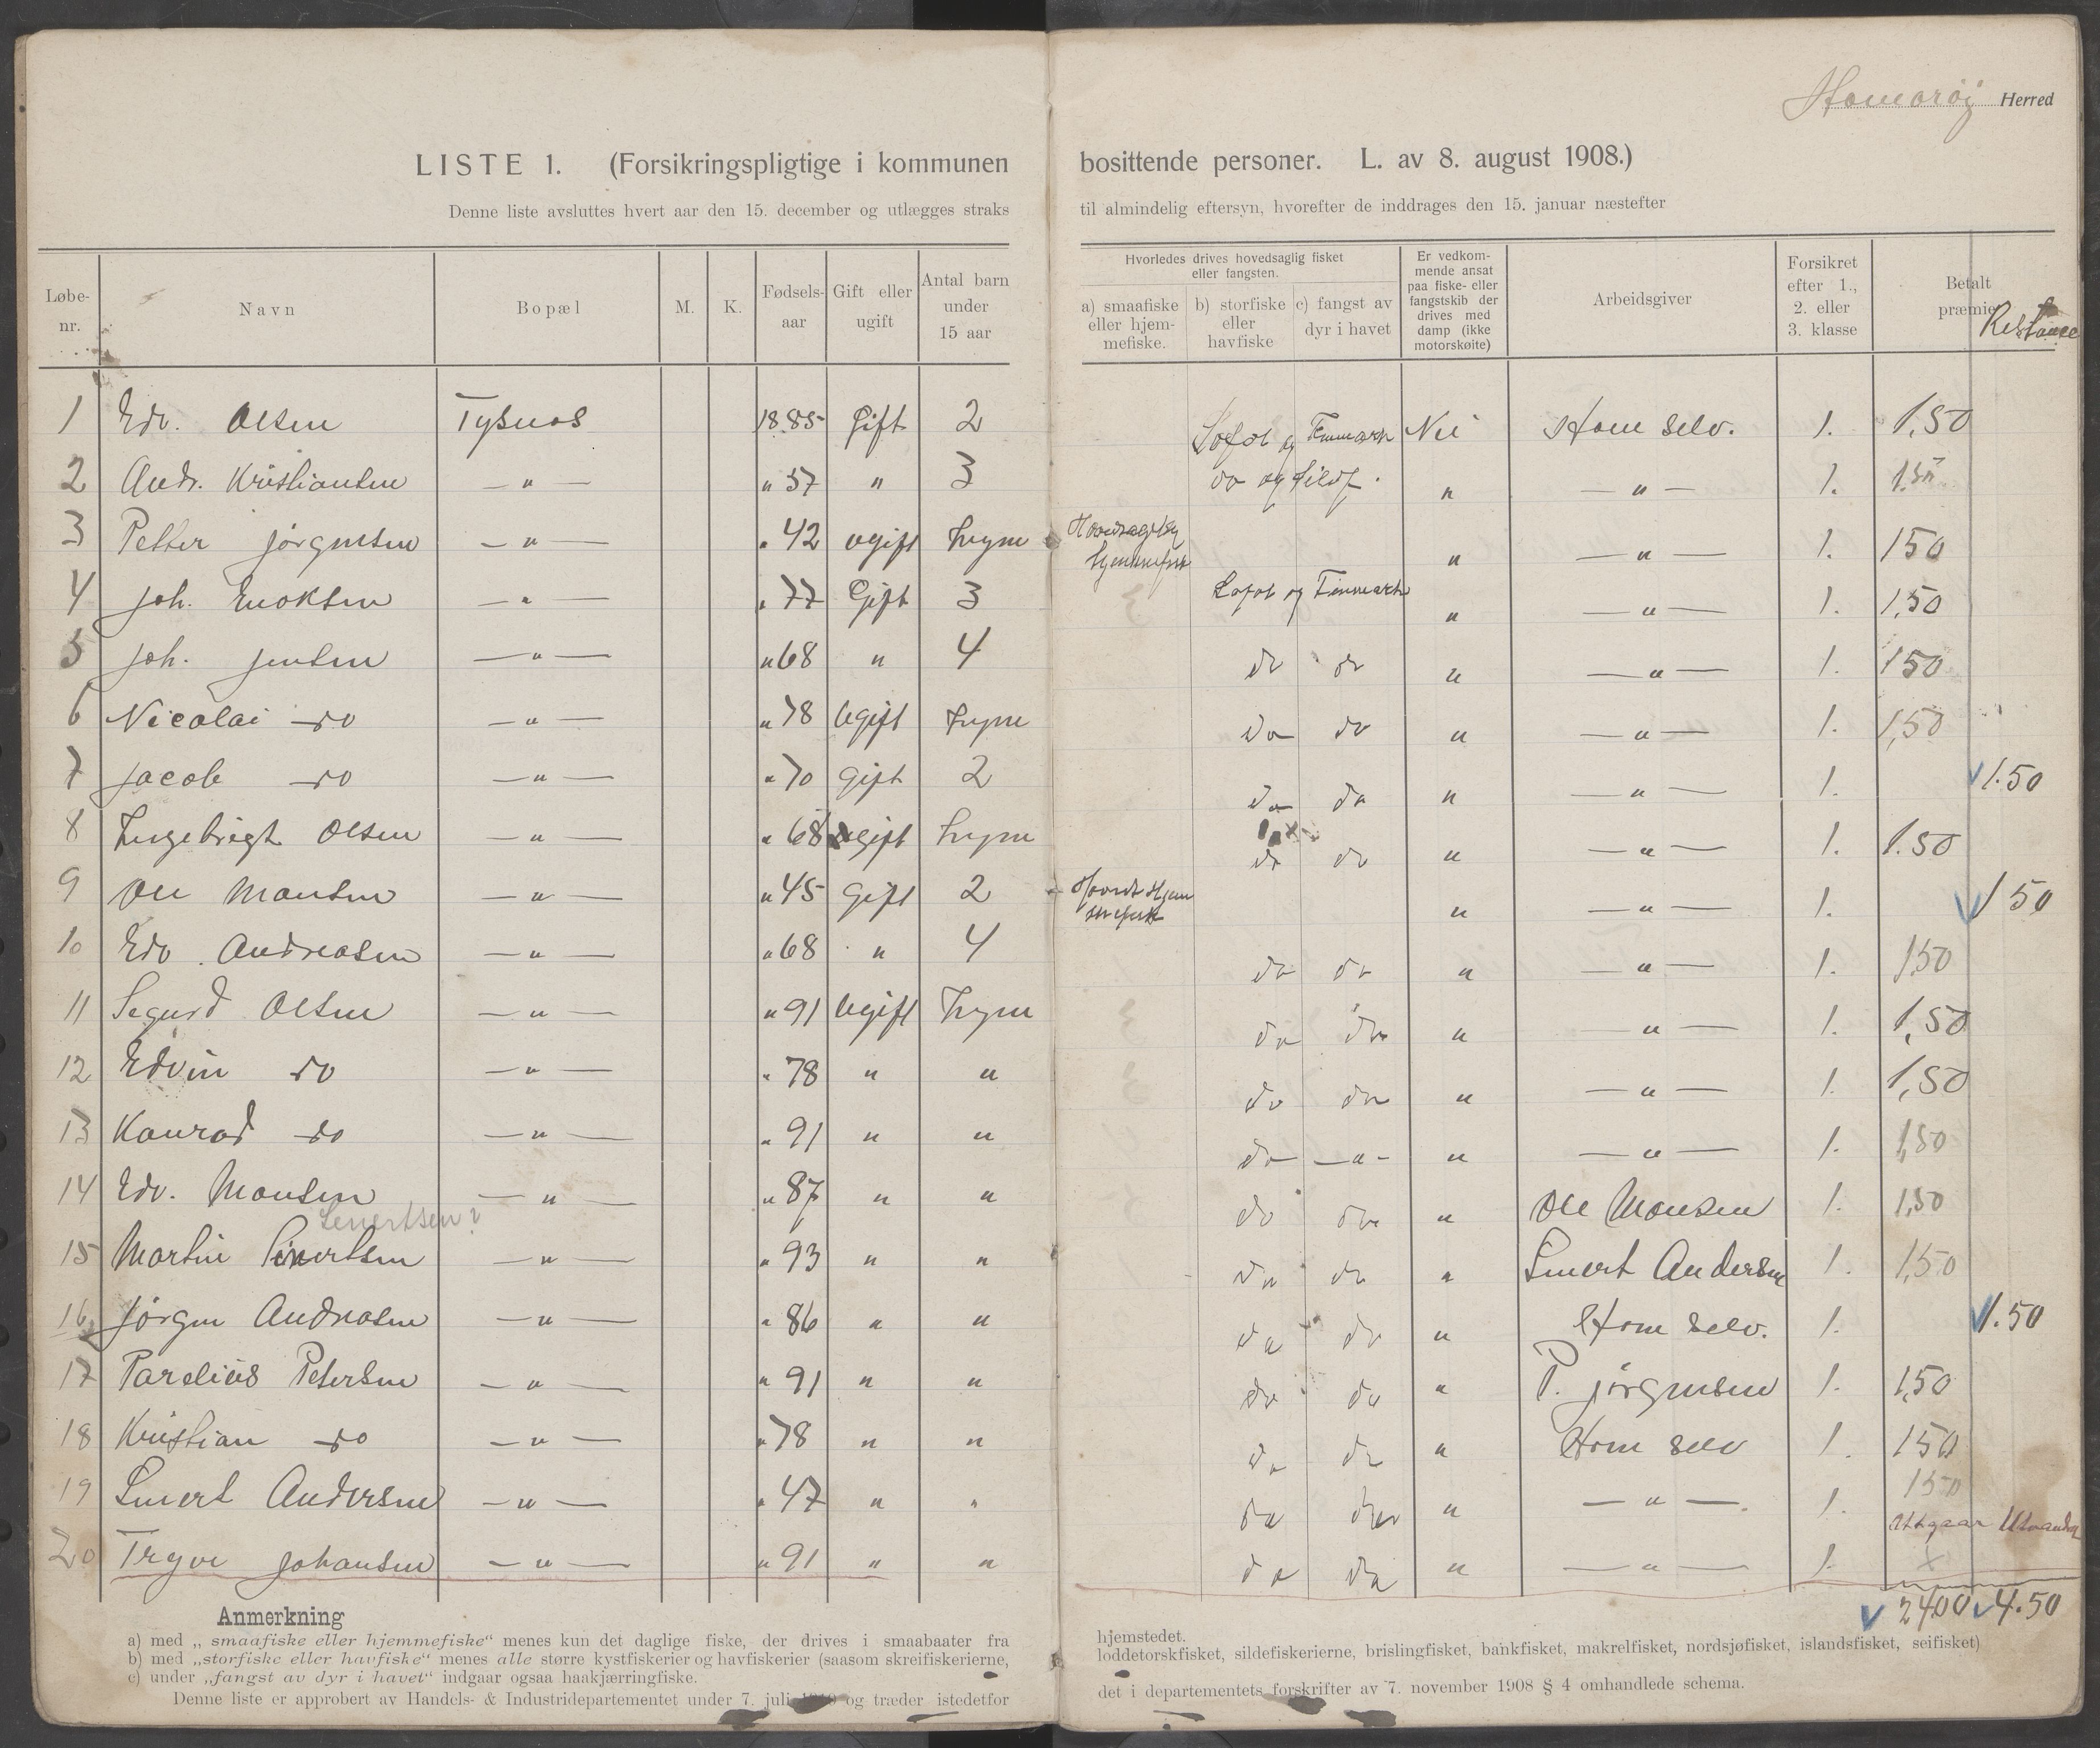 Hamarøy Herred
LISTE 1. (Forsikringspligtige i kommunen bosittende personer. L. av 8. august 1908.)
Denne liste avsluttes hvert aar den 15. december og utlægges straks til almindelig eftersyn, hvorefter de inddrages den 15. januar næstefter
Løbe-nr. Navn Bopæl M. K. Fødsels-aar Gift eller ugift Antal barn under 15 aar
Hvorledes drives hovedsaglig fisket eller fangsten.
a) smaafiske eller hjem-mefiske. b) storfiske eller havfiske c) fangst av dyr i havet
Er vedkom-mende ansat paa fiske- eller fangstskib der drives med damp (ikke motorskøite)
Arbeidsgiver
Forsikret efter 1., 2. eller 3. klasse
Betalt præmie
Restance
1 Edv. Olsen Tysnes 1885 Gift 2 Lofot og Finmark Nei Ham selv. 1. 1,50
2 Andr. Kristiansen — " — " 57 " 3 do og sildf. " — " — 1. 1.50
3 Petter Jørgensen — " — " 42 ugift Ingen Hovedsagelig hjemmefisk " — " — 1. 150
4 Joh. Enoksen — " — " 77 Gift 3 Lofot og Finmark " — " — 1. 1,50
5 Joh. Jensen — " — " 68 " 4 do do " — " — 1. 150
6 Nicolai do — " — " 78 Ugift Ingen do do " — " — 1. 1,50
7 Jacob do — " — " 70 Gift 2 do do " — " — 1. 1.50
8 Ingebrigt Olsen — " — " 68 ugift Ingen do do " — " — 1. 1.50
9 Ole Monsen — " — " 45 Gift 2 Hoveds Hjemmefisk " — " — 1. 150
10 Edv. Andreasen — " — " 68 " 4 do do " — " — 1. 150
11 Segurd Olsen — " — " 91 Ugift Ingen do do " — " — 1. 1,50
12 Edvin do — " — " 78 " " do do " — " — 1. 1,50
13 Konrad do — " — " 91 " " do — " — " — " — 1. 1,50
14 Edv. Monsen — " — " 87 " " do do " Ole Monsen 1. 1,50
Senertsen?
15 Martin Sinertsen — " — " 93 " " do do " Sinert Andersen 1. 1,50
16 Jørgen Andreasen — " — " 86 " " do do " Ham selv. 1. 1.50
17 Parelius Petersen — " — " 91 " " do do " P. Jørgensen 1. 1,50
18 Kristian do — " — " 78 " " do do " Ham selv 1. 150
19 Sinert Andersen — " — " 47 " " do do " — " — 1. 150
Utgaar Utvandr
20 Trygve Johansen — " — " 91 " " do do " — " — 1. x
2400 4.50
Anmerkning
a) med „ smaafiske eller hjemmefiske“ menes kun det daglige fiske, der drives i smaabaater fra hjemstedet.
b) med „storfiske eller havfiske“ menes alle større kystfiskerier og havfiskerier (saasom skreifiskerierne, loddetorskfisket, sildefiskerierne, brislingfisket, bankfisket, makrelfisket, nordsjøfisket, islandsfisket, seifisket)
c) under „fangst av dyr i havet“ indgaar ogsaa haakjærringfiske.
Denne liste er approbert av Handels- & Industridepartementet under 7. juli 1910 og træder istedetfor det i departementets forskrifter av 7. november 1908 § 4 omhandlede schema.